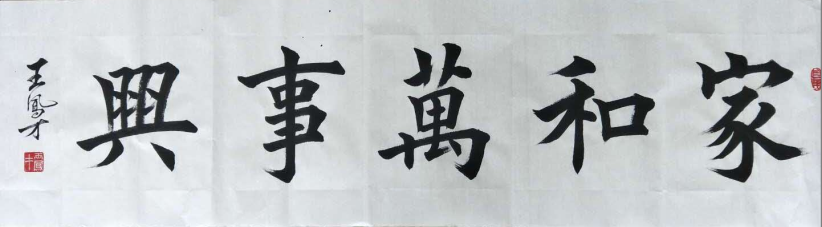 家和萬事興
王鳳才